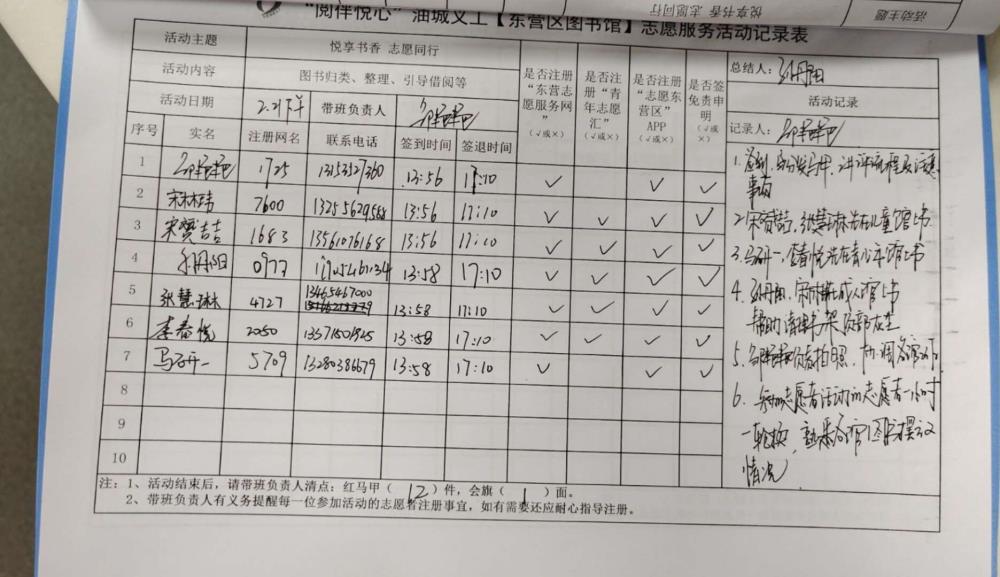 悦享书香 志愿同行
活动主题
“阅伴悦心”油城义工【东营区图书馆】志愿服务活动记录表
活动主题 悦享书香 志愿同行
活动内容 图书归类、整理、引导借阅等
活动日期 2.21下午 带班负责人
序号 实名 注册网名 联系电话 签到时间 签退时间
是否注册“东营志愿服务网”(√或×)
是否注册“青年志愿汇”(√或×)
是否注册“志愿东营区”APP(√或×)
是否签免责申明(√或×)
1 1725 13153527360 13:56 17:10 √ √ √
2 7600 13255629588 13:56 17:10 √ √ √ √
3 宋贾喆 1683 13561076168 13:56 17:10 √ √ √ √
4 孙丹阳 0977 13:58 17:10 √ √ √ √
5 张慧琳 4727 13465467000 13:58 17:10 √ √ √ √
6 李春悦 2050 13371501525 13:58 17:10 √ √ √ √
7 5709 13280386679 13:58 17:10 √ √ √
8
9
10
总结人：孙丹阳
活动记录
记录人：
1.签到，分发马甲，讲评流程及注意
事项
2.宋贾喆，张慧琳先在儿童馆上书
3.李春悦先在青少年馆上书
4.孙丹阳，成人馆上书
帮助清理书架
5.负责拍照，协调各馆
6.参加志愿者活动的志愿者一小时
一轮换，熟悉各馆图书摆放
情况
注：1、活动结束后，请带班负责人清点：红马甲（ 12 ）件，会旗（ 1 ）面。
2、带班负责人有义务提醒每一位参加活动的志愿者注册事宜，如有需要还应耐心指导注册。